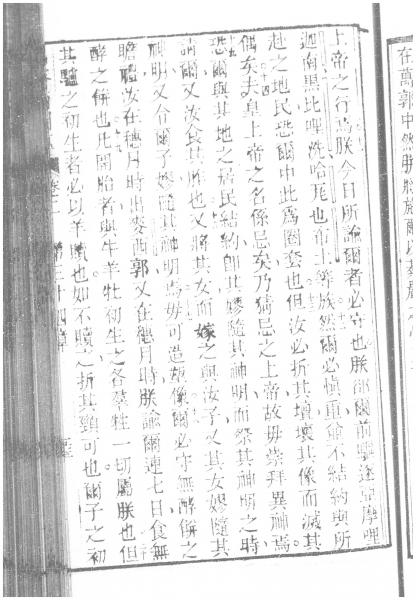 在萬郭中然朕將於爾
上帝之行焉朕今日所諭爾者必守也朕卻爾前驅逐亞摩哩
迦南黑比哩洗哈尾也布士等族然爾必慎重不結約與所
赴之地民恐爾中此爲圈套也但汝必折其壇壞其像而滅其
偶矣夫皇上帝之名係忌矣乃猜忌之上帝故毋崇拜異神焉
恐爾與其地之居民結約卽其嫪隨其神明而祭其神明之時
請爾又汝食其胙也又將其女而嫁之與汝子又其女嫪隨其
神明又令爾子嫪隨其神明焉毋可造鎔像爾必守無酵餅之
瞻禮汝在穗月時出麥西郭又在穗月時朕諭爾連七日食無
酵之餅也凡開胎者與牛羊牡初生之各羣牲一切屬朕也但
其驢之初生者必以羊贖也如不贖之折其頸可也爾子之初
卷二 第三十四章